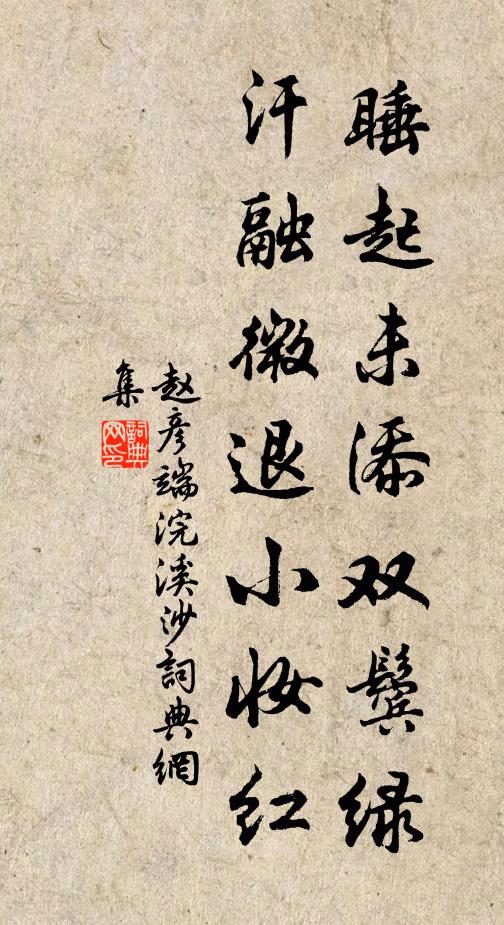 睡起未添双鬓绿
汗融微退小妆红
赵彦端浣溪沙詞典網
集
詞典
网印